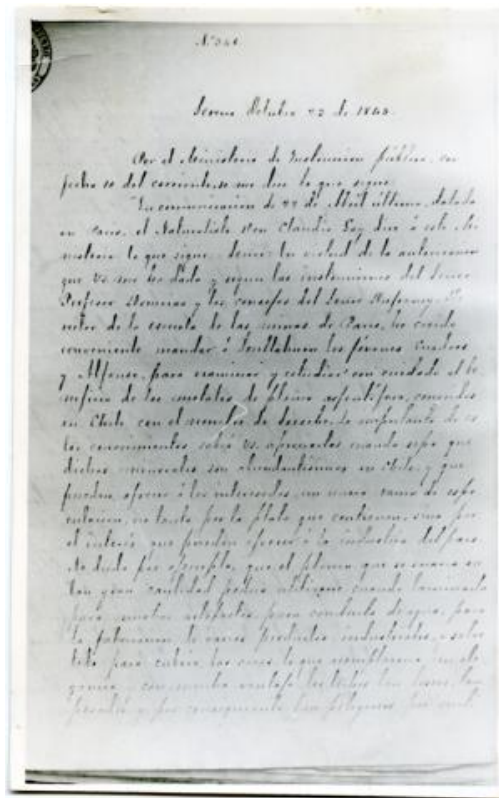 Serena Octubre 23 de 184
Por el Ministerio de Instruccion pública, con
fecha 10 del corriente, se me dice lo que sigue
En comunicacion de 22 de Abril último, datada
en Paris, el Naturalista Don Claudio Gay dice á este Mi
nisterio lo que sigue. Señor: En virtud de la autorizacion
que Us. me ha dado y segun las instrucciones del Señor
Profesor y los consejos del Señor
de la escuela de las minas de Paris, he creido
conveniente mandar á los jóvenes Cuadros
y Alfonso, para examinar y estudiar con cuidado el be
neficio de los metales de plomo arjentífero, conocidos
en Chile con el nombre de La importancia de es
tos conocimientos sabrá Us. apreciarla cuando sepa que
dichos minerales son abundantísimos en Chile, y que
pueden ofrecer á los interesados un nuevo ramo de espe
culacion, no tanto por la plata que contienen, sino por
el interes que pueden ofrecer á la industria del pais.
No dudo por ejemplo, que el plomo que se
tan gran cantidad podria utilizarse cuando laminado
para muchos artefactos, para conducto de agua, para
la de varios productos industriales, i sobre
todo para cubrir las casas lo que
y con mucha ventaja los techos
y por consiguiente tan